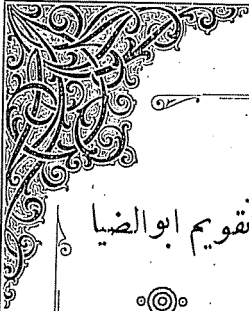 تقويم ابوالضيا